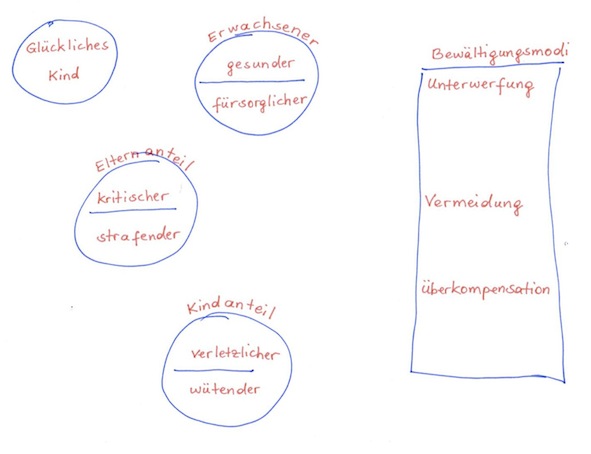 Glückliches
Kind
Erwachsener
gesunder
fürsorglicher
Elternanteil
kritischer
strafender
Kindanteil
verletzlicher
wütender
Bewältigungsmodi
Unterwerfung
Vermeidung
überkompensation